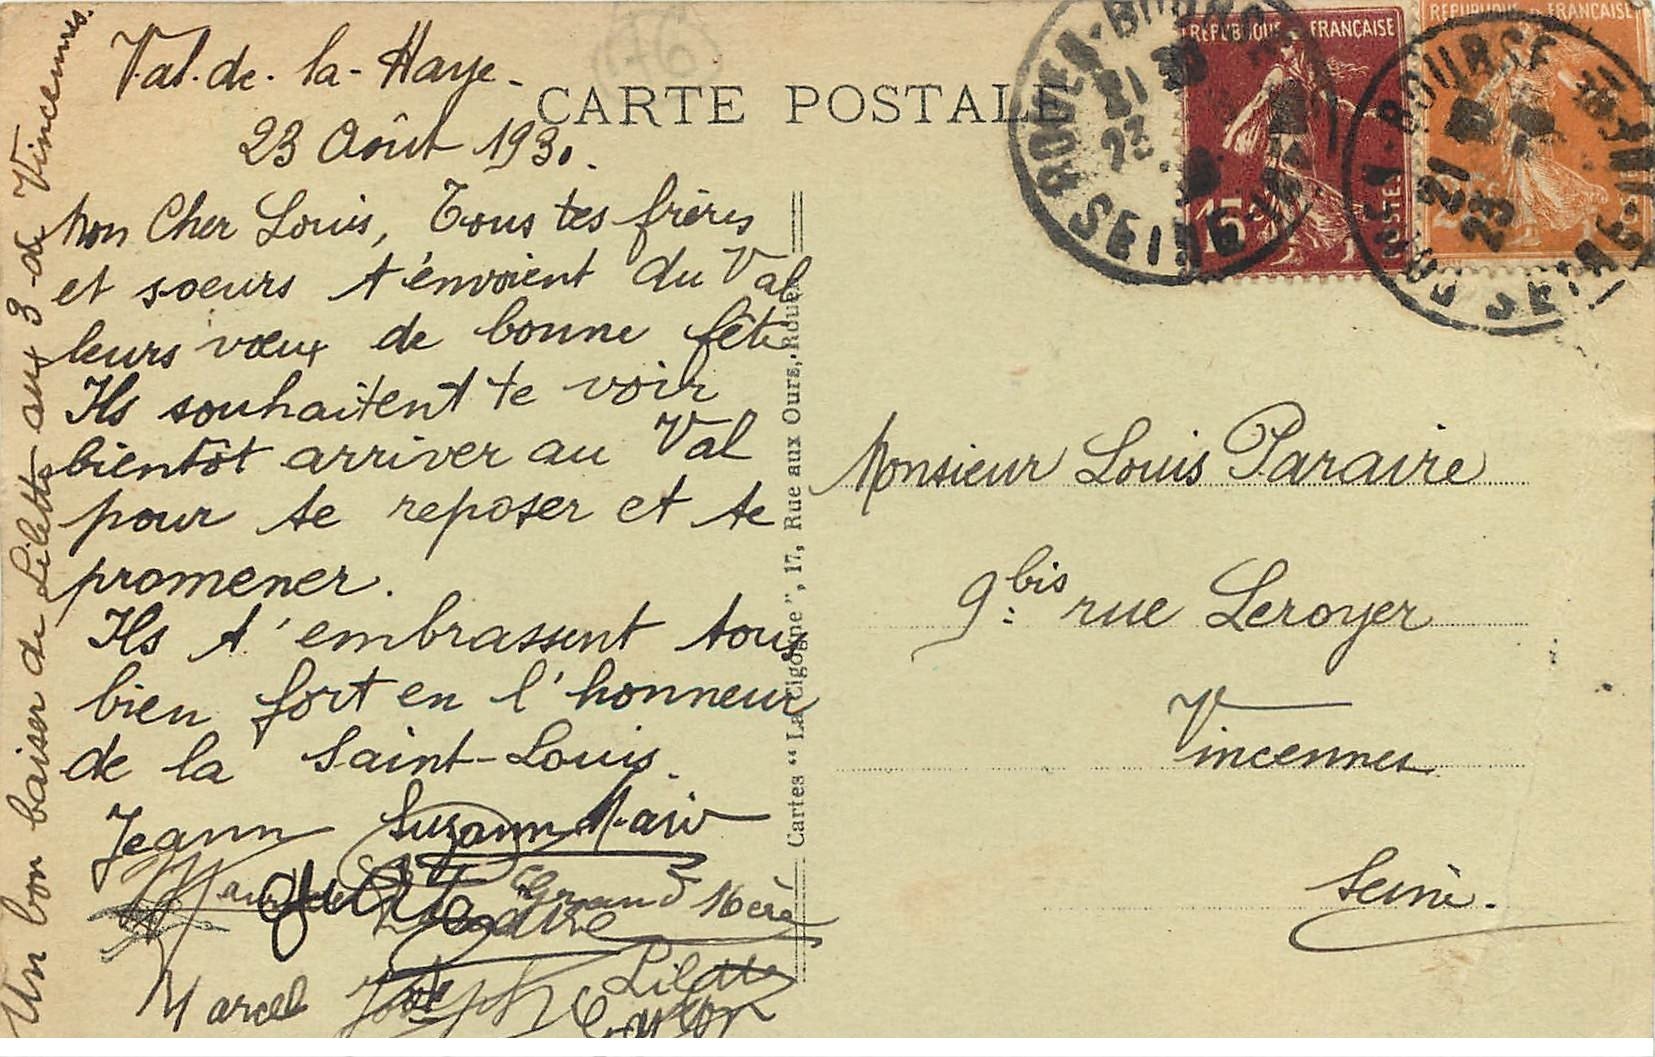 Val-de-la-Haye-
23 Août 1930.
Mon Cher Louis, Tous tes frères
et soeurs t'envoient du Val
leurs vœux de bonne fête
Ils souhaitent te voir
bientôt arriver au Val
pour te reposer et te
promener.
Ils t'embrassent tous
bien fort en l'honneur
de la Saint-Louis.
Jeanne Suzanne Marie
Grand Mère
Marcel Joseph Lilette
Un bon baiser de Lilette aux 3 de Vincennes.
76
CARTE POSTALE
Cartes "La Cigogne", 17, Rue aux Ours, Rouen
ROUEN-BOURSE
21
23
SEINE
REPUBLIQUE FRANÇAISE
15
POSTES
BOURSE
21
23
SEINE
REPUBLIQUE FRANÇAISE
Monsieur Louis Paraire
9bis rue Leroyer
Vincennes
Seine.